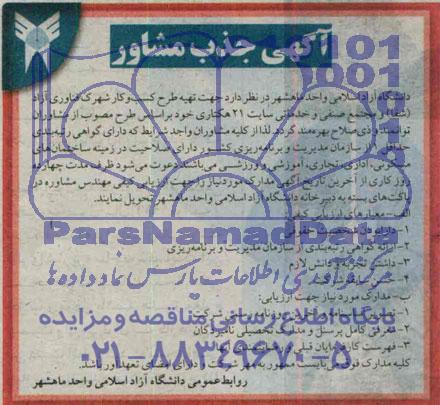 آگهی جذب مشاور
دانشگاه آزاد اسلامی واحد ماهشهر در نظر دارد جهت تهیه طرح کسب و کار شهرک فناوری آزاد
(شفا) و مجتمع صنفی و خدماتی سایت ۲۱ هکتاری خود براساس طرح مصوب از مشاوران
توانمند و ذی‌صلاح بهره‌مند گردد. لذا از کلیه مشاوران واجد شرایط که دارای گواهی رتبه‌بندی
از سازمان مدیریت و برنامه‌ریزی کشور دارای صلاحیت در زمینه ساختمان‌های
مسکونی، اداری، تجاری، آموزشی و ورزشی می‌باشند دعوت می‌شود ظرف مدت چهارده
روز کاری از آخرین تاریخ آگهی مدارک مورد نیاز را جهت ارزیابی کیفی مهندس مشاور در
پاکت‌های بسته به دبیرخانه دانشگاه آزاد اسلامی واحد ماهشهر تحویل نمایند.
الف- معیارهای ارزیابی کیفی
ParsNamadData
۲- ارائه گواهی رتبه‌بندی از سازمان مدیریت و برنامه‌ریزی
۳- داشتن تجربه و دانش لازم
مرکز فرآوری اطلاعات پارس نماد داده ها
ب- مدارک مورد نیاز جهت ارزیابی:
پایگاه اطلاع رسانی مناقصه و مزایده
۲- معرفی کامل پرسنل و مدارک تحصیلی نامبردگان
۳- فهرست کارفرمایان قبلی
۰۲۱-۸۸۳۴۹۶۷۰-۵
کلیه مدارک فوق می‌بایست ممهور به مهر شرکت و دارای امضای تعهدآور باشد.
روابط عمومی دانشگاه آزاد اسلامی واحد ماهشهر